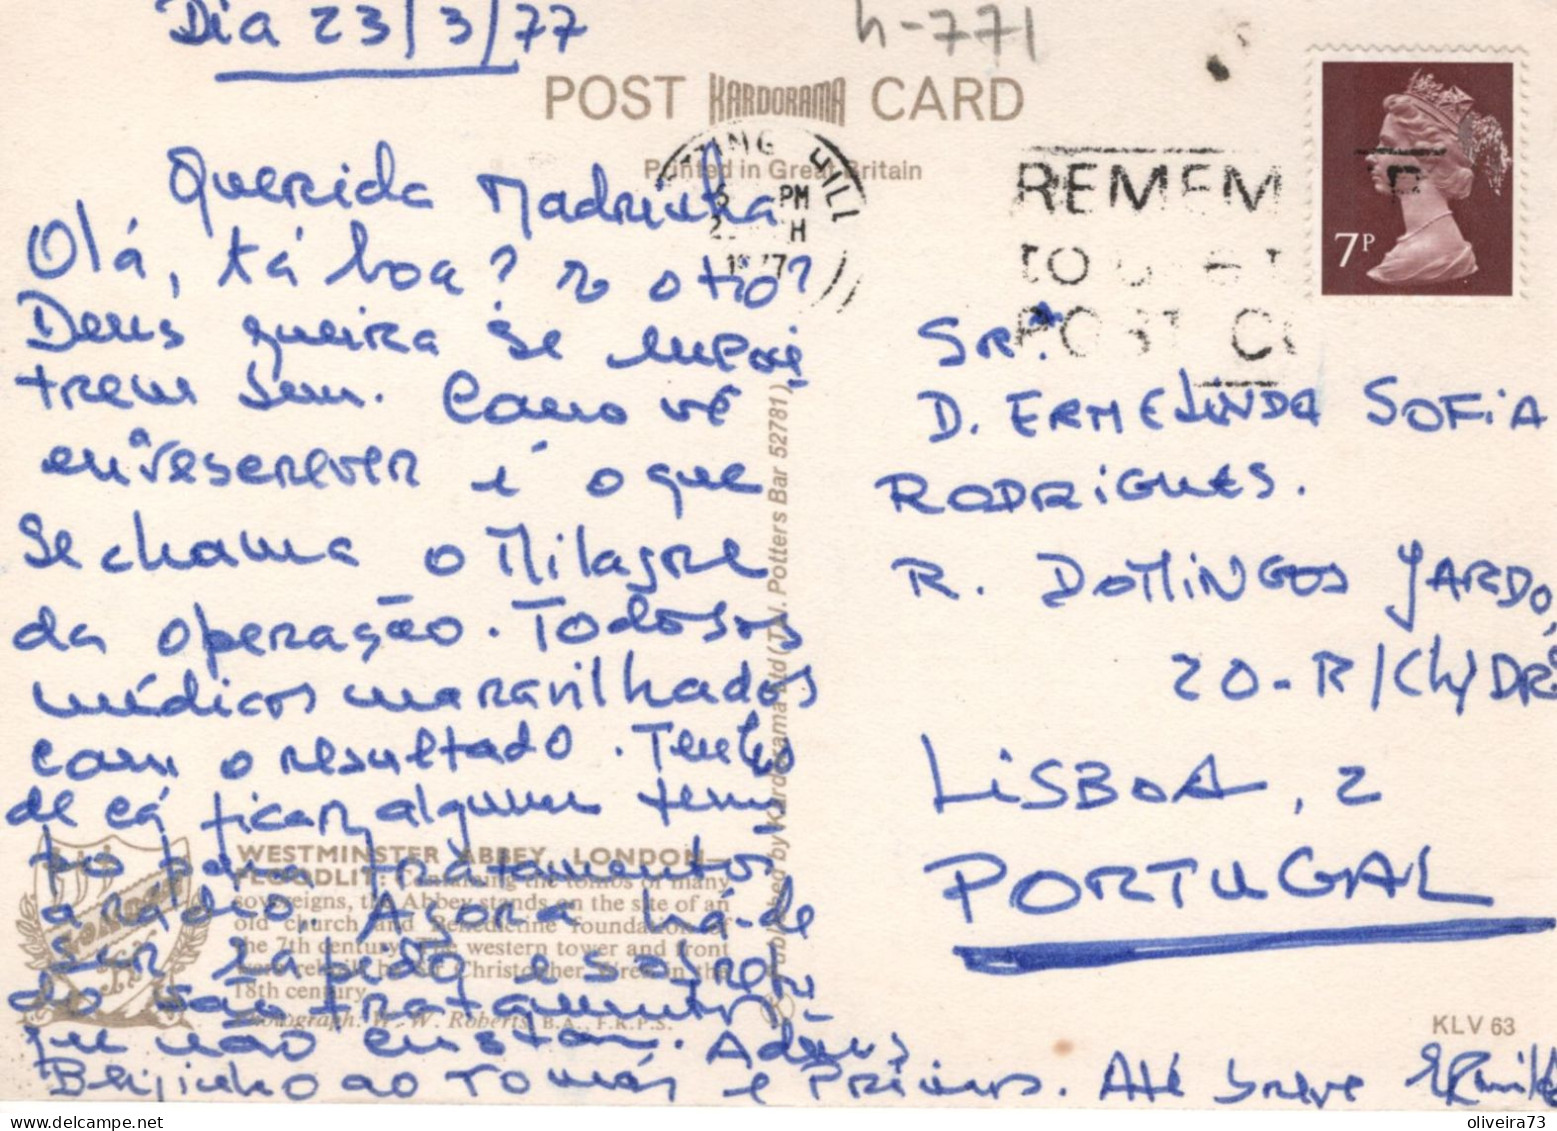 Dia 23/3/77
h-771
POST KARDORAMA CARD
Printed in Great Britain
HILL
PM
7P
Querida Madrinha
Olá, tá boa? e o tio?
Deus queira se encon
trem bem. Como vê
escrever é o que
se chama o Milagre
da operação. Todos os
médicos maravilhados
com o resultado. Tenho
de cá ficar algum tem
po para tratamentos
a rádio. Agora há-de
ser rápido e sobretu
do são tratamentos
que não custam. Adeus
Beijinho ao Tomás e Primos. Até breve
SRª
D. ERMELINDA SOFIA
RODRIGUES.
R. DOMINGOS JARDO,
20-R/Ch/DRº
LISBOA, 2
PORTUGAL
Published by Kardorama Ltd (T.V. Potters Bar 52781)
WESTMINSTER ABBEY, LONDON—
FLOODLIT: Containing the tombs of many
sovereigns, the Abbey stands on the site of an
old church and Benedictine foundation of
the 7th century. The western tower and front
were rebuilt by Sir Christopher Wren in the
18th century.
Photograph: W. W. Roberts, B.A., F.R.P.S.
KLV 63
oliveira73